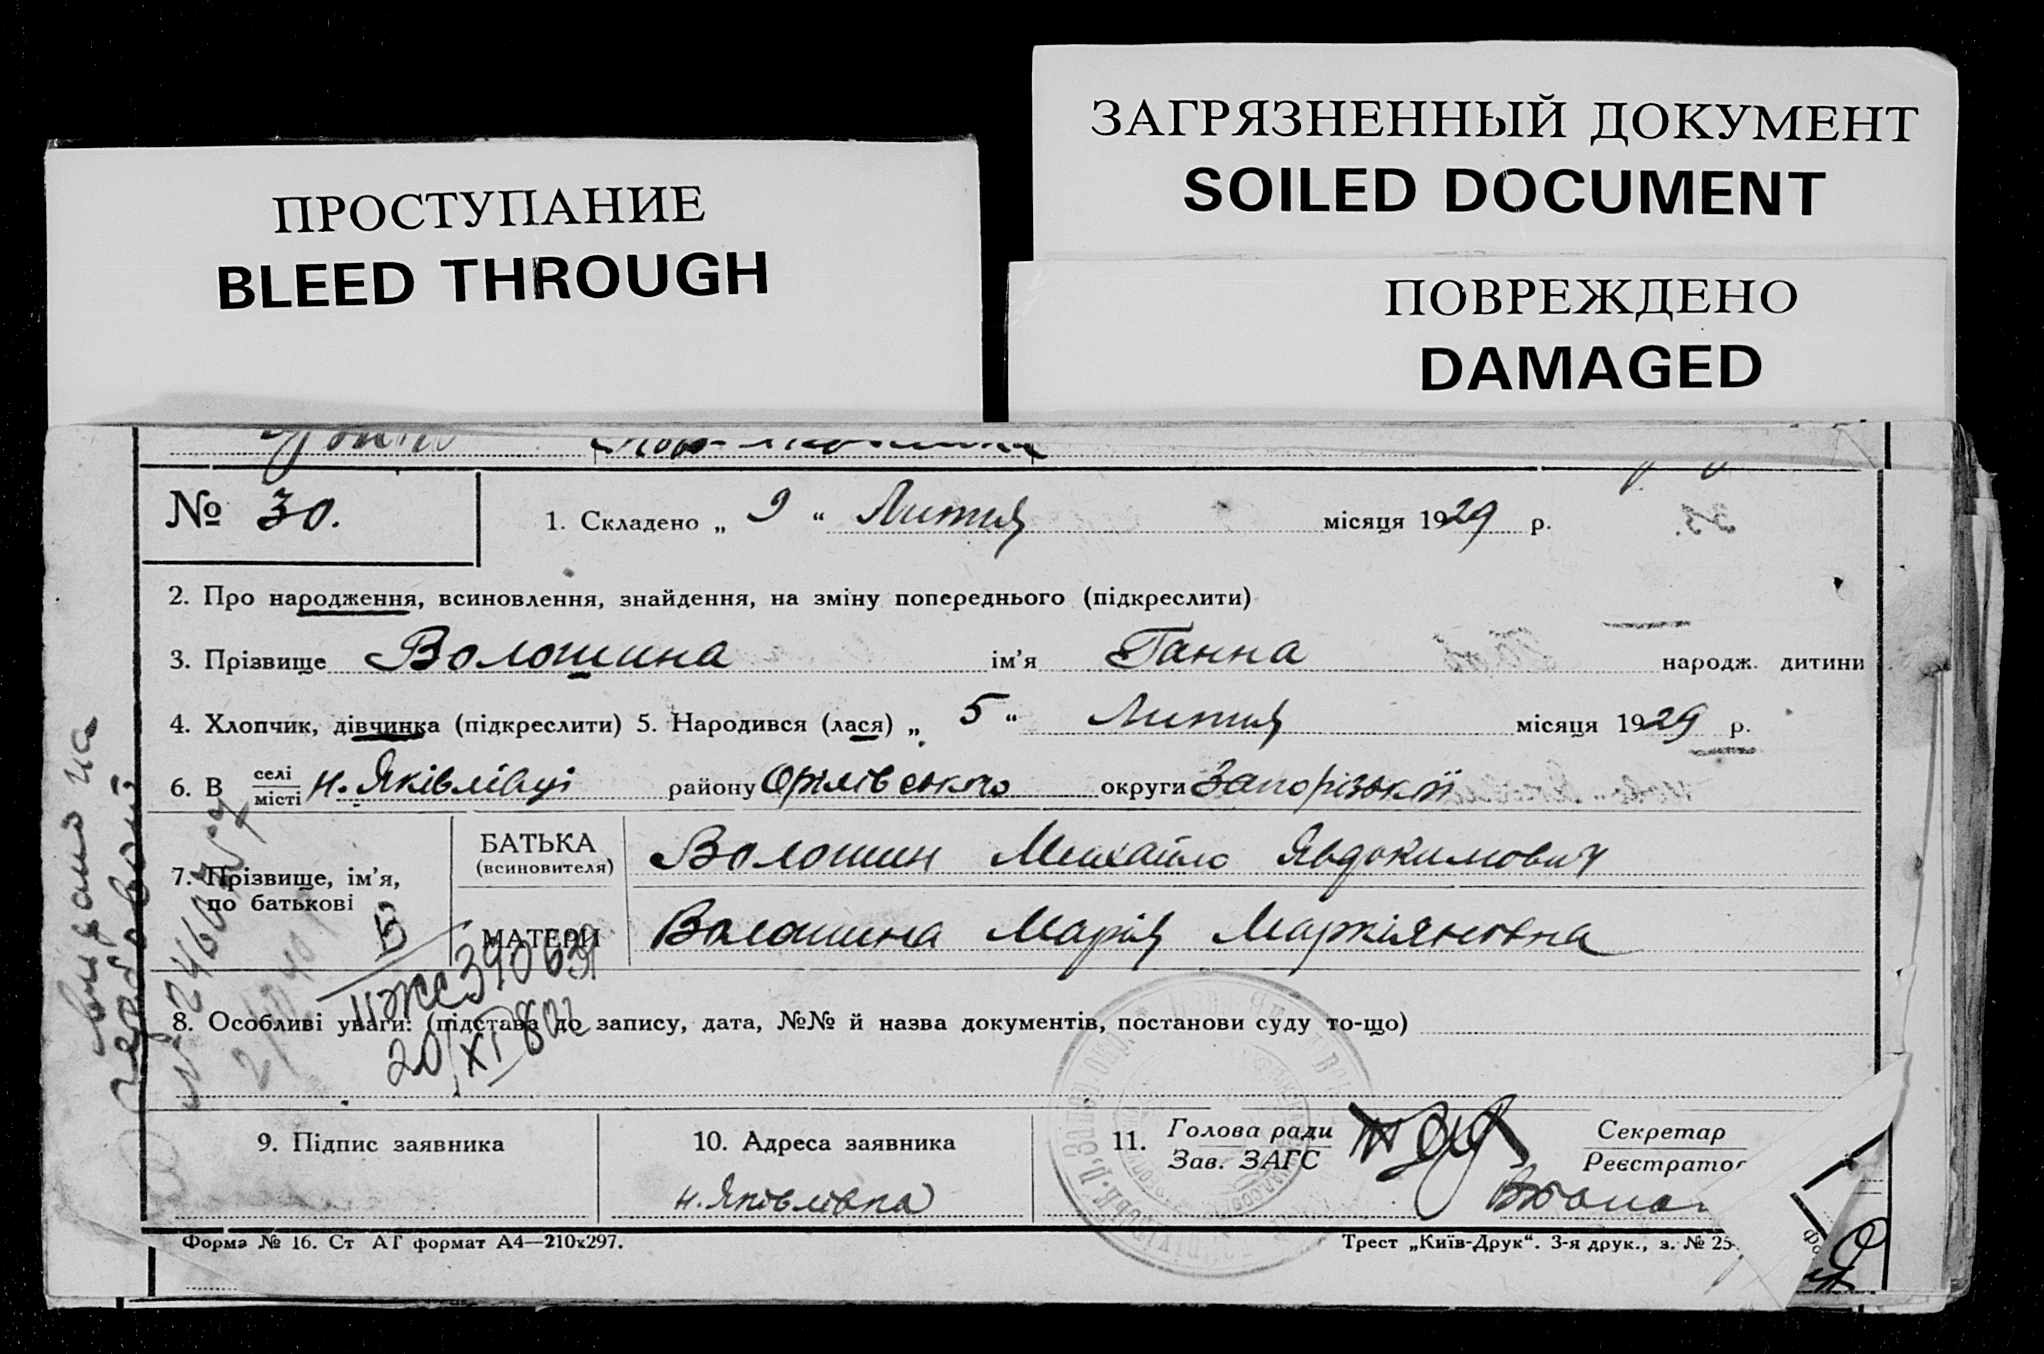 ЗАГРЯЗНЕННЫЙ ДОКУМЕНТ
SOILED DOCUMENT
ПРОСТУПАНИЕ
BLEED THROUGH
ПОВРЕЖДЕНО
DAMAGED
№ 30.
1. Складено „ 9 “ Лютня місяця 1929 р.
2. Про народження, всиновлення, знайдення, на зміну попереднього (підкреслити)
3. Прізвище Волошина ім’я Ганна народж. дитини
4. Хлопчик, дівчинка (підкреслити) 5. Народився (лася) „ 5 “ Лютня місяця 1929 р.
6. В селі місті Н. Яківлівці району Оріхівського округи Запорізької
7. Прізвище, ім’я, по батькові
БАТЬКА
(всиновителя)
Волошин Михайло Явдокимович
МАТЕРИ
Волошина Марія
8. Особливі уваги: (підстава до запису, дата, №№ й назва документів, постанови суду то-що)
II ЖС 390639
20/XI 80г
видано на
9. Підпис заявника
10. Адреса заявника
Н. Яковлівка
11. Голова ради
Зав. ЗАГС
Секретар
Реєстратор
Форма № 16. Ст АГ формат А4—210х297.
Трест „Київ-Друк“. 3-я друк., з. № 25